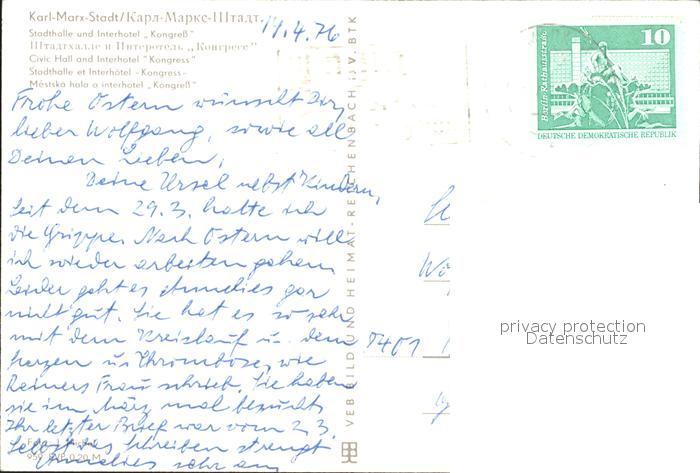 Karl-Marx-Stadt/Карл-Маркс-Штадт
Stadthalle und Interhotel „Kongreß"
Штадтхалле и Интеротель „Конгресс"
Civic Hall and Interhotel "Kongress"
Stadthalle et Interhôtel -Kongress-
Městska hala a interhotel „Kongreß"
14.4.76
Frohe Ostern wünscht Dir,
lieber Wolfgang, sowie all
Deinen Lieben,
Deine Ursel nebst Kindern,
Seit dem 29.3. hatte ich
die Grippe. Nach Ostern will
ich wieder arbeiten gehen.
Leider geht es Annelies gar
nicht gut. Sie hat es so sehr
mit dem Kreislauf u. dem
Herzen u. Thrombose, wie
Reiners Frau schrieb. Sie haben
sie im März mal besucht.
Ihr letzter Brief war vom 2.3.
Selbst das Schreiben strengt
Annelies sehr an.
VEB BILD UND HEIMAT · REICHENBACH i. V. BTK
10
Berlin, Rathausstraße
DEUTSCHE DEMOKRATISCHE REPUBLIK
privacy protection
Datenschutz